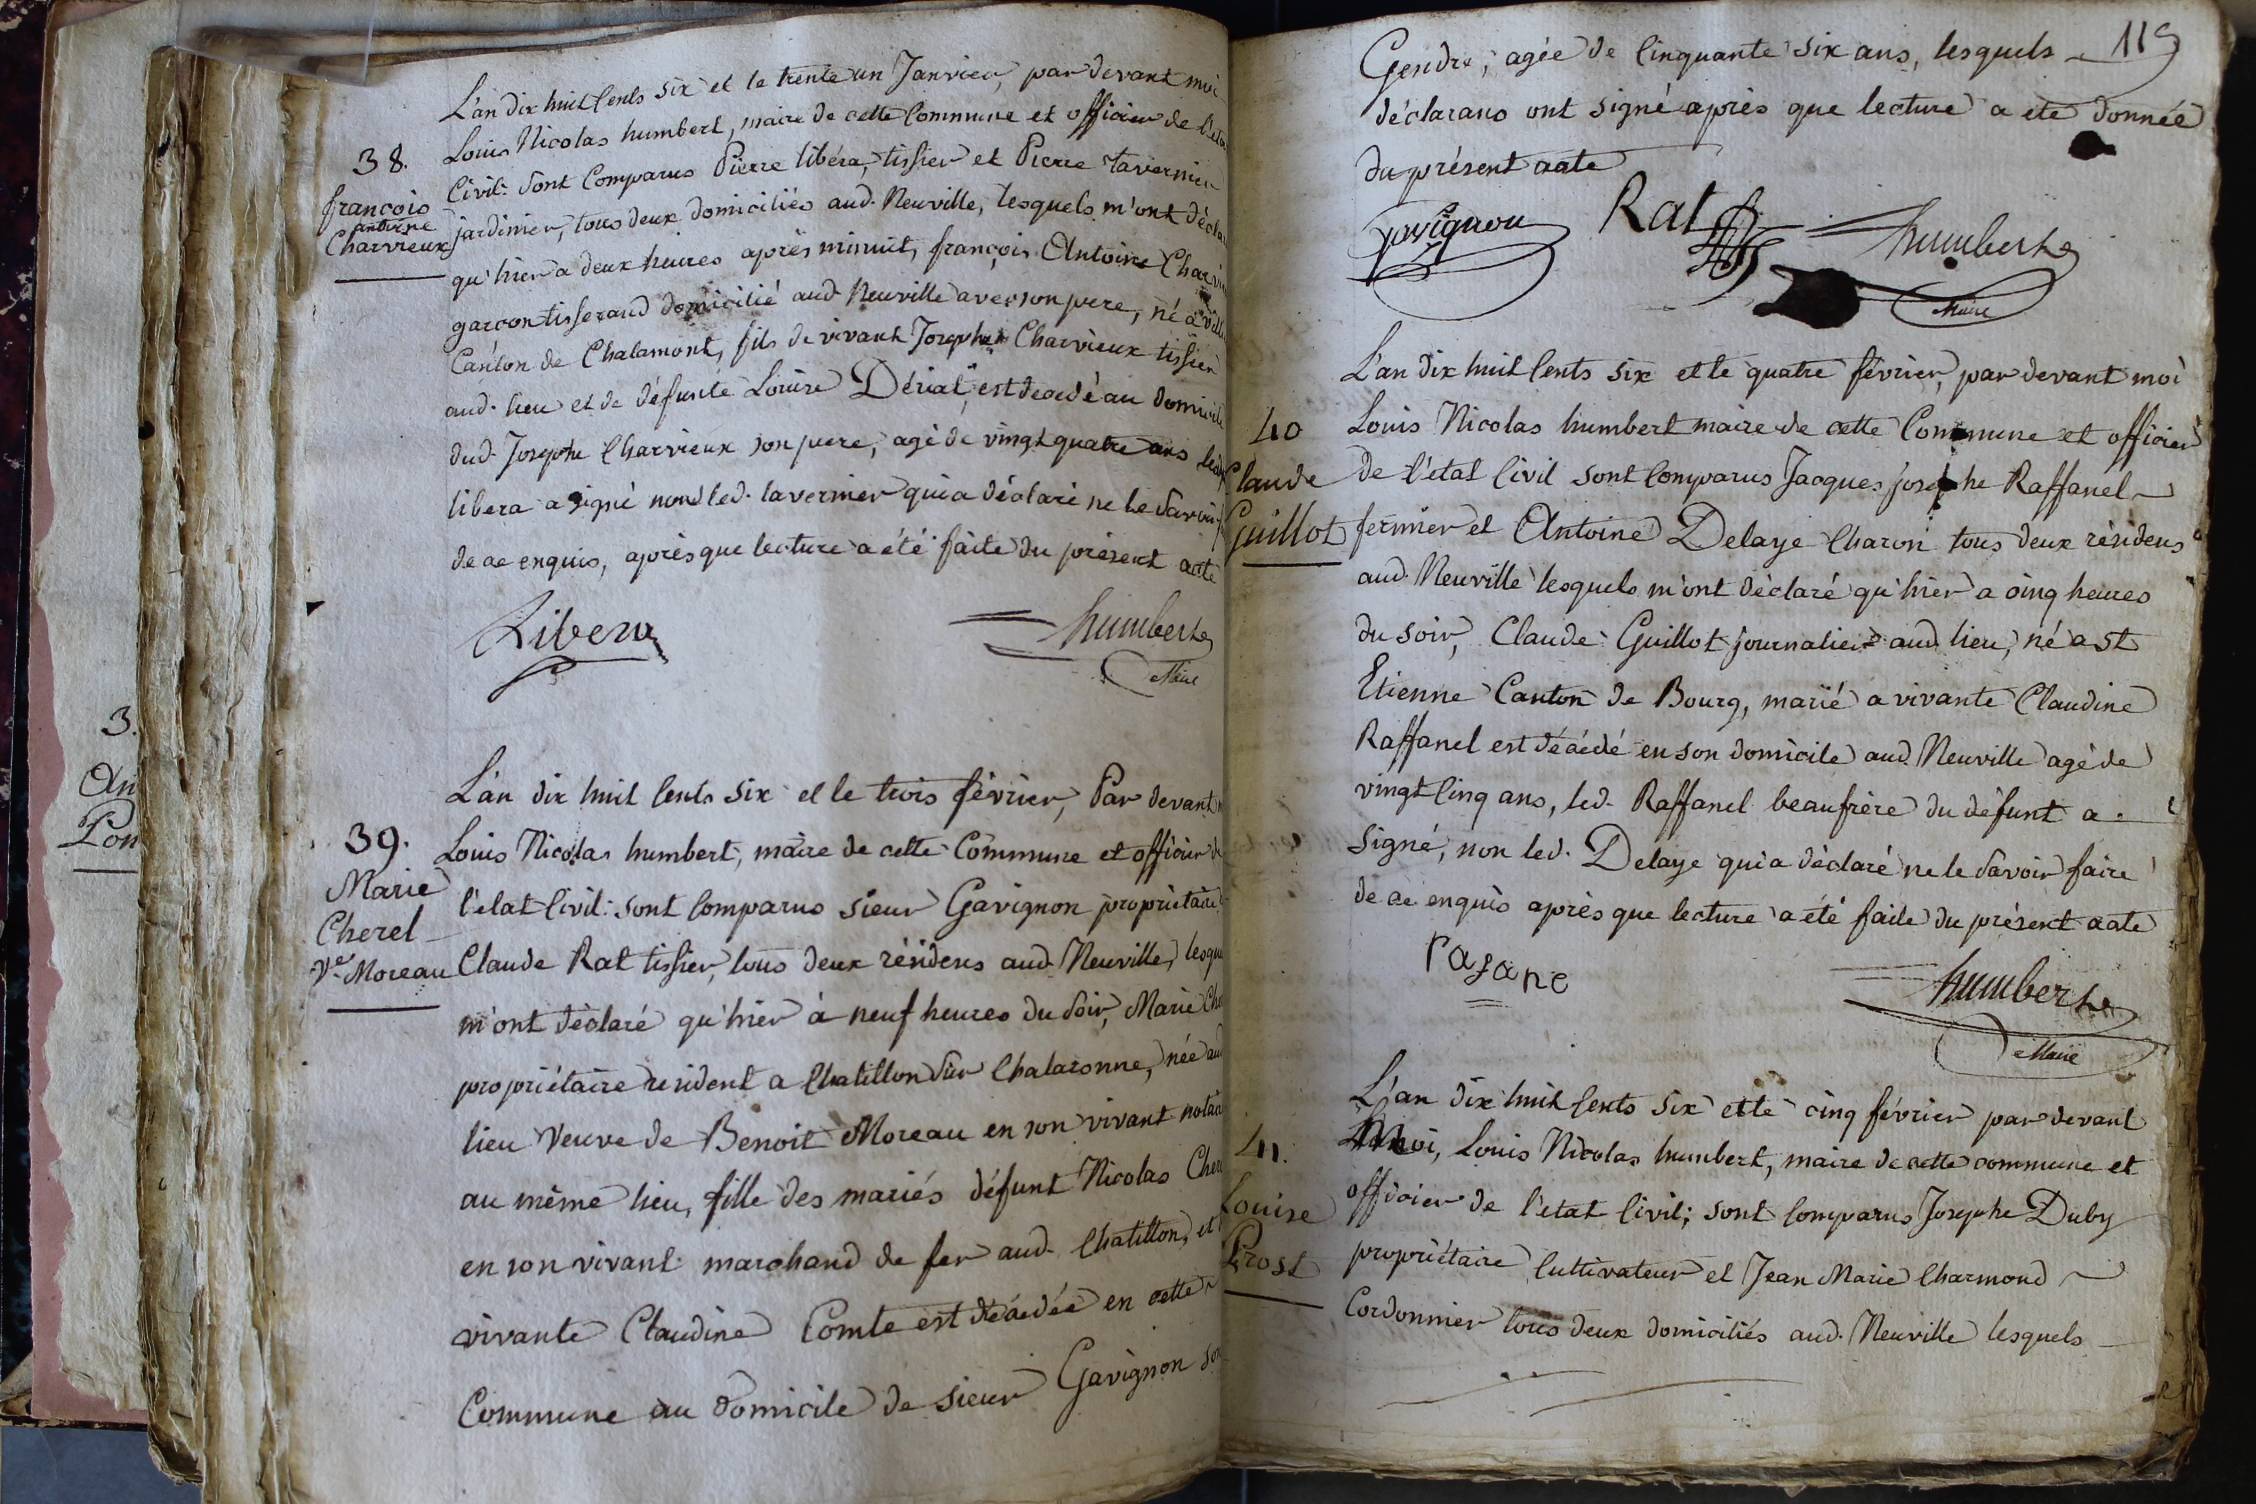 38.
françois
antoine
Charvieux
L'an dix huit Cents six et le trente un Janvier, par devant moi
Louis Nicolas humbert, maire de cette Commune et officier de l'eta
Civil: sont Comparus Pierre libéra, tissier et Pierre tavernier
jardinier, tous deux domiciliés aud. Neuville, lesquels m'ont décla
qu'hier a deux heures après minuit, françois Antoine Charvi
garçon tisserand domicilié aud Neuville avec son pere, né a Vill
Canton de Chalamont, fils de vivant Josephe Charvieux tissier
aud. lieu et de défunte Louise Dérial, est décédé au domicile
dud. Josephe Charvieux son pere, agé de vingt quatre ans
libera a signé non led. tavernier qui a déclaré ne le savoir
de ce enquis, après que lecture a été faite du présent acte
Libera humbert
Maire
3.
An
Pon
39.
Marie
Cherel
Ve Moreau
L'an dix huit Cents six et le trois février, Par devant
Louis Nicolas humbert, maire de cette Commune et officier de
l'état Civil: sont Comparus sieur Gavignon propriétaire
Claude Rat tissier, tous deux résidens aud. Neuville, lesqu
m'ont déclaré qu'hier à neuf heures du soir, Marie Che
propriétaire resident a Chatillon sur Chalaronne, née aud
lieu Veuve de Benoit Moreau en son vivant notai
au même lieu, fille des mariés défunt Nicolas Cher
en son vivant marchand de fer aud. Chatillon, et
vivante Claudine Comte est décédée en cette
Commune au domicile de sieur Gavignon son
119
Gendre, agée de Cinquante six ans, lesquels
déclarans ont signé après que lecture a ete donnée
du présent acte
gavignon Rat humbert
Maire
40
Claude
Guillot
L'an dix huit Cents six et le quatre février, par devant moi
Louis Nicolas humbert maire de cette Commune et officier
de l'état Civil sont Comparus Jacques josephe Raffanel
fermier et Antoine Delaye Charon tous deux résidens
aud. Neuville lesquels m'ont déclaré qu'hier a cinq heures
du soir, Claude Guillot journalier aud. lieu, né a St
Etienne Canton de Bourg, marié a vivante Claudine
Raffanel est décédé en son domicile aud. Neuville agé de
vingt Cinq ans, led. Raffanel beaufrère du défunt a
signé, non led. Delaye qui a déclaré ne le savoir faire
de ce enquis après que lecture a été faite du présent acte
rafane humbert
Maire
41.
Louise
Prost
L'an dix huit Cents six et le cinq février par devant
Moi, Louis Nicolas humbert, maire de cette commune et
officier de l'état Civil; sont Comparus Josephe Duby
propriétaire Cultivateur et Jean Marie Charmond
Cordonnier tous deux domiciliés aud. Neuville lesquels